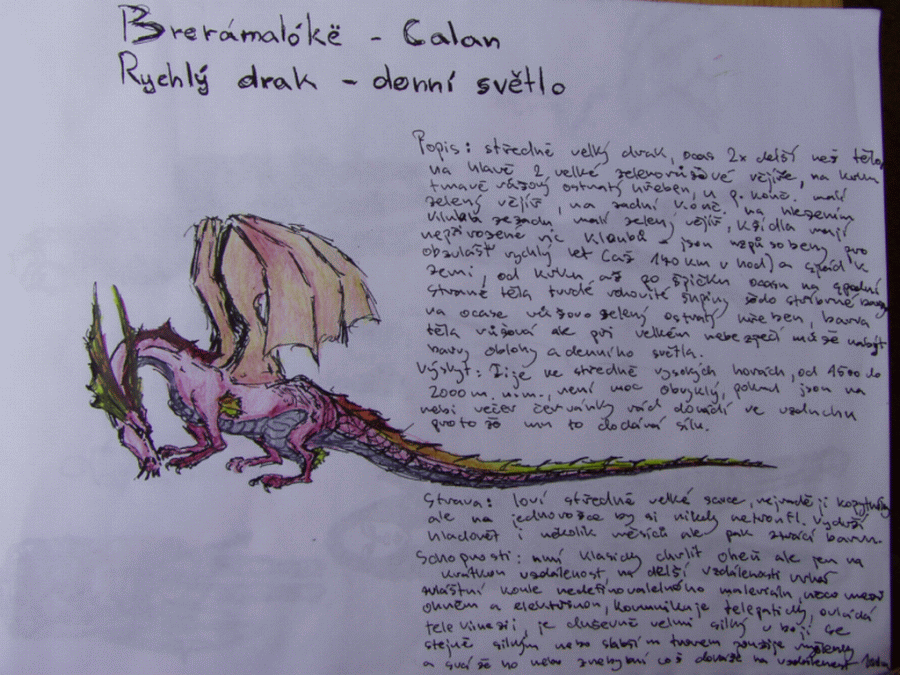 Brerámalókë - Calan
Rychlý drak - denní světlo
Popis: středně velký drak, ocas 2x delší než tělo,
na hlavě 2 velké zelenorůžové vějíře, na krku
tmavě růžový ostnatý hřeben, u p. konč. malí
zelený vějíř, na zadní konč. na hlezením
kloubu zezadu malí zelený vějíř, křídla mají
nepřirozeně víc kloubů - jsou uzpůsobeny pro
obzvlášť rychlý let (až 140 km v hod) a spád k
zemi, od krku až po špičku ocasu na spodní
straně těla tvrdé rohovité šupiny šedo stříbrné barvy
na ocase růžovo zelený ostnatý hřeben, barva
těla růžová ale při velkém nebezpečí může nabýt
barvy oblohy a denního světla.
Výskyt: žije ve středně vysokých horách, od 1500 do
2000 m. n. m., není moc obvyklý, pokud jsou na
nebi večer červánky rád dovádí ve vzduchu
protože mu to dodává sílu.
Strava: loví středně velké savce, nejraději kopytníky
ale na jednorožce by si nikdy netroufl. Vydrží
hladovět i několik měsíců ale pak ztrácí barvu.
Schopnosti: umí klasicky chrlit oheň ale jen na
krátkou vzdálenost, na delší vzdálenosti vrhá
zvláštní koule nedefinovatelného materiálu, něco mezi
ohněm a elektřinou, komunikuje telepaticky, ovládá
telekinezi, je duševně velmi silný v boji se
stejně silným nebo slabším tvorem použije myšlenky
a svíže ho nebo znehybní což dokáže na vzdálenost